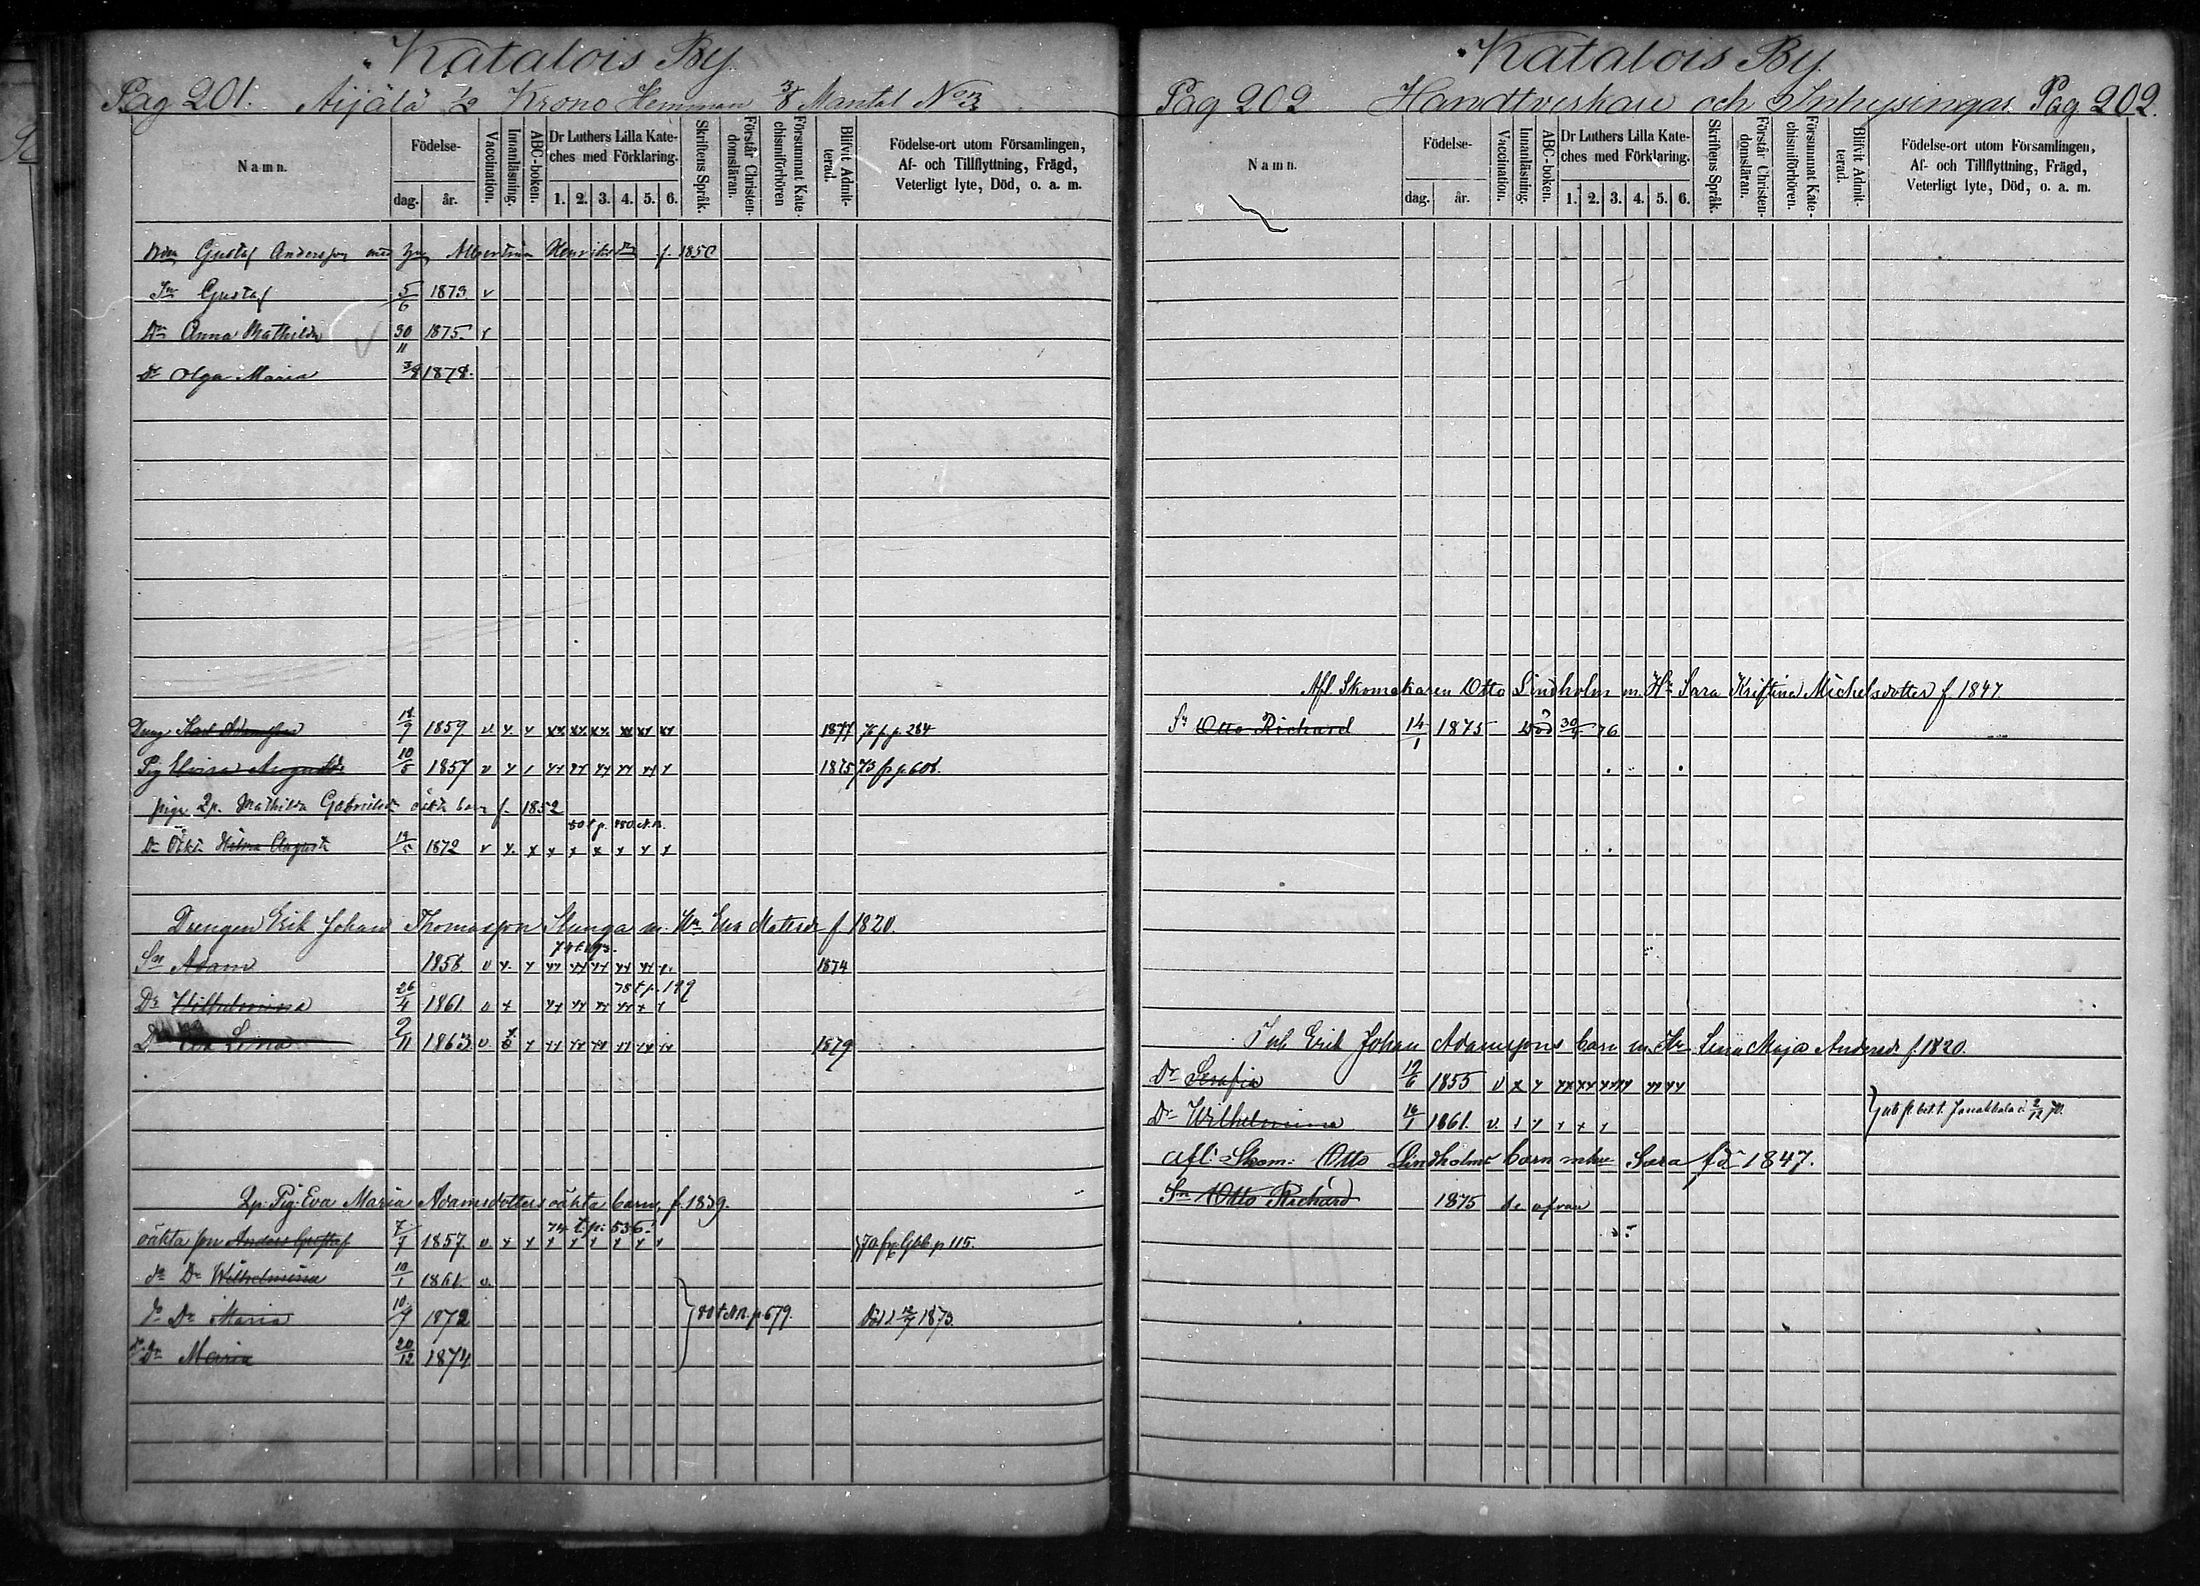 Katalois By.
Pag 201. Aijälä 1/2 Krono Hemman 3/8 Mantal No 3
Namn.
Födelse-
dag. år.
Vaccination.
Innanläsning.
ABC-boken.
Dr Luthers Lilla Kate-
ches med Förklaring.
1. 2. 3. 4. 5. 6.
Skriftens Språk.
Förstår Christen-
domsläran.
Försummat Kate-
chismiförhören
Blifvit Admit-
terad.
Födelse-ort utom Församlingen,
Af- och Tillflyttning, Frägd,
Veterligt lyte, Död, o. a. m.
Gustaf Andersson med Albertina Henriksdr f. 1850
Sn Gustaf 5/6 1873 v
Dr Anna Mathilda 30/11 1875 v
Dr Olga Maria 1878.
Dreng Karl Adamsson 18/9 1859 v x x xx xx xx xx xx xx 1877 78 f p 284
Pig Elvira Augusta 10/5 1857 v x x xx xx xx xx xx x 1875 73 fr p 608.
piga Mathilda oäkta barn f. 1852
Dr Oäkta Hilma Augusta 1872 v x x x x x x x x
Drengen Erik Johan Thomasson Stunga m. Hu Eva Matsdr f 1820.
Sn Adam 1858 v x x xx xx xx xx xx x 1874
78 t p. 149
Dr Wilhelmina 26/4 1861 v x xx xx xx xx x x
Dr Eva Lina 2/11 1863 v x x xx xx xx xx xx xx 1879
Pig Eva Maria Adamsdotters oäkta barn, f. 1839.
74 t. p. 536.
oäkta son Anders Gustaf 1857. v x x x x x x x x 70 fr p 115.
do Dr Wilhelmina 10/1 1861 v.
do Dr Maria 10/9 1872 80 t p 679. Död 1873.
do Dr Maria 20/12 1874
Katalois By.
Pag 202 Handtverkare och Inhysingar. Pag 202.
Namn.
Födelse-
dag. år.
Vaccination.
Innanläsning.
ABC-boken.
Dr Luthers Lilla Kate-
ches med Förklaring.
1. 2. 3. 4. 5. 6.
Skriftens Språk.
Förstår Christen-
domsläran.
Försummat Kate-
chismiförhören.
Blifvit Admit-
terad.
Födelse-ort utom Församlingen,
Af- och Tillflyttning, Frägd,
Veterligt lyte, Död, o. a. m.
Afl Skomakaren Otto Lindholm m. Hu Sara Kristina Michelsdotter f 1847
Sn Otto Richard 14/1 1875 Död 76
Inh Erik Johan Adamssons barn m. Hu Lena Maja Andersdr f. 1820.
Dr Serafia 19/6 1855 v x x xx xx xx xx xx xx
Dr Wilhelmina 1861. v. x x x x x Janakkala 70.
afl. Skom: Otto Lindholms barn m hu Sara fd 1847.
Sn Otto Richard 1875 se ofvan